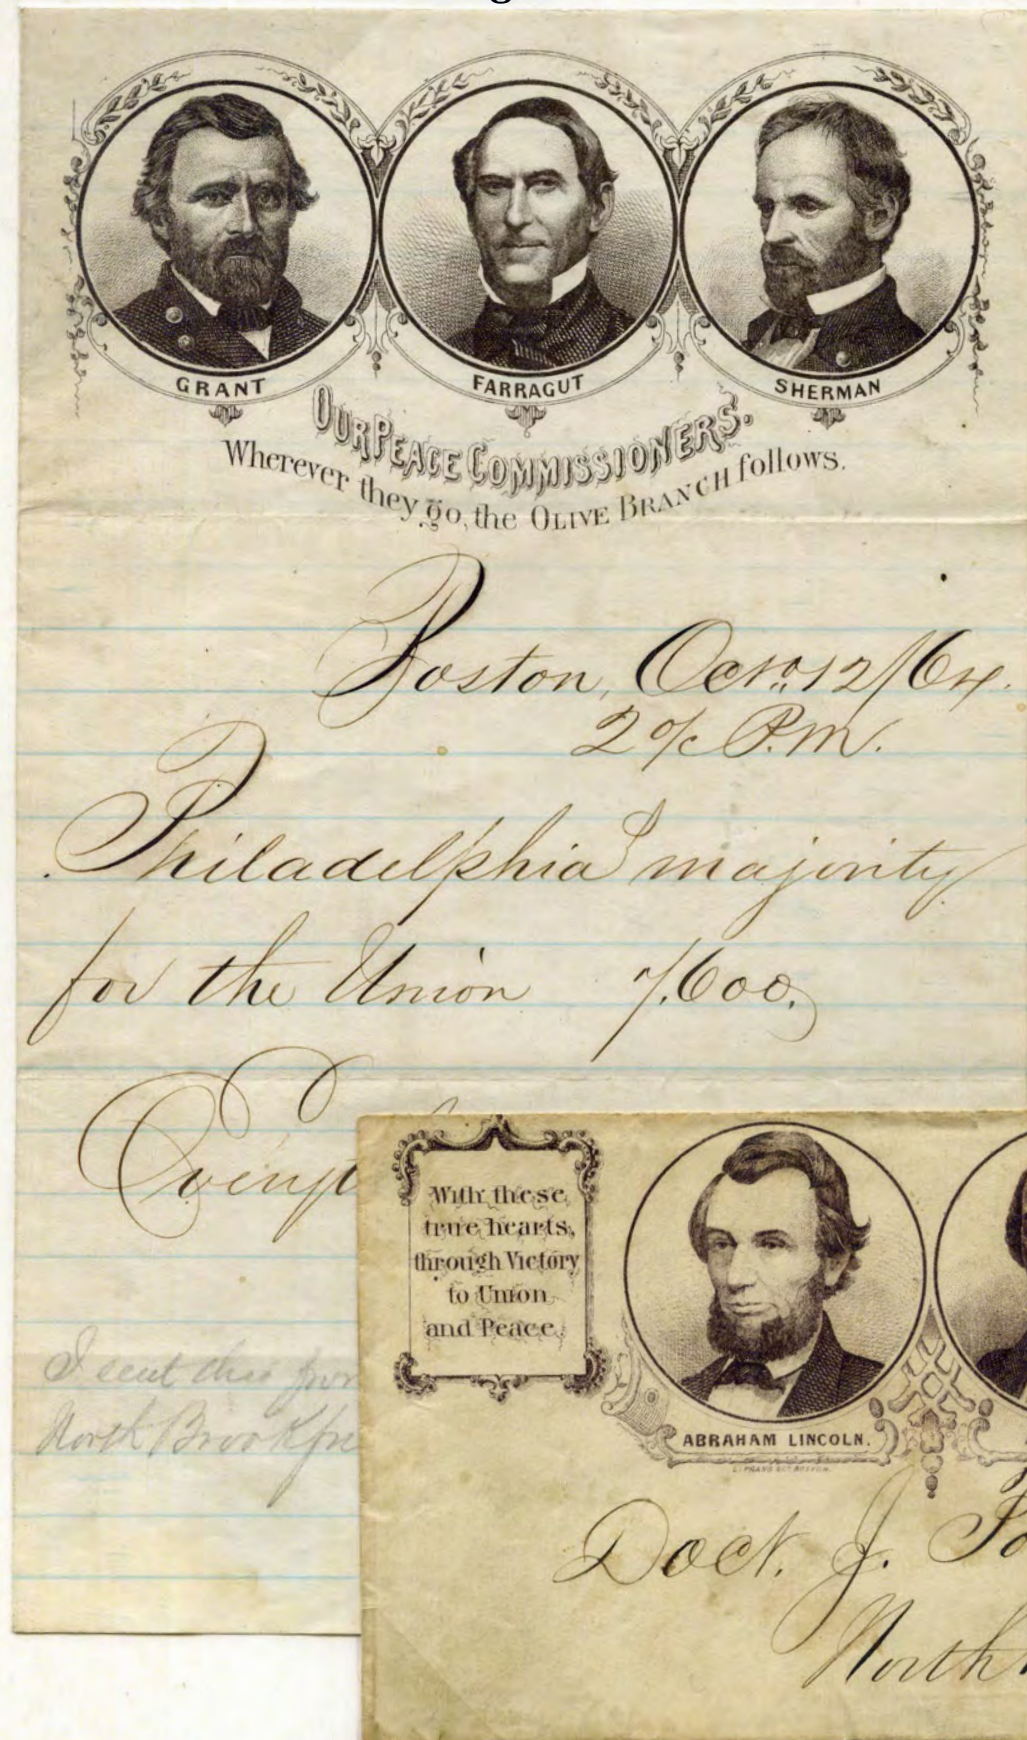 GRANT
FARRAGUT
SHERMAN
OUR PEACE COMMISSIONERS.
Wherever they go, the OLIVE BRANCH follows.
Boston, Oct. 12/64.
2 o/c P.M.
Philadelphia majority
for the Union 7,600.
I sent this
North
With these
true hearts,
through Victory
to Union
and Peace.
ABRAHAM LINCOLN.
Doct. J.
North